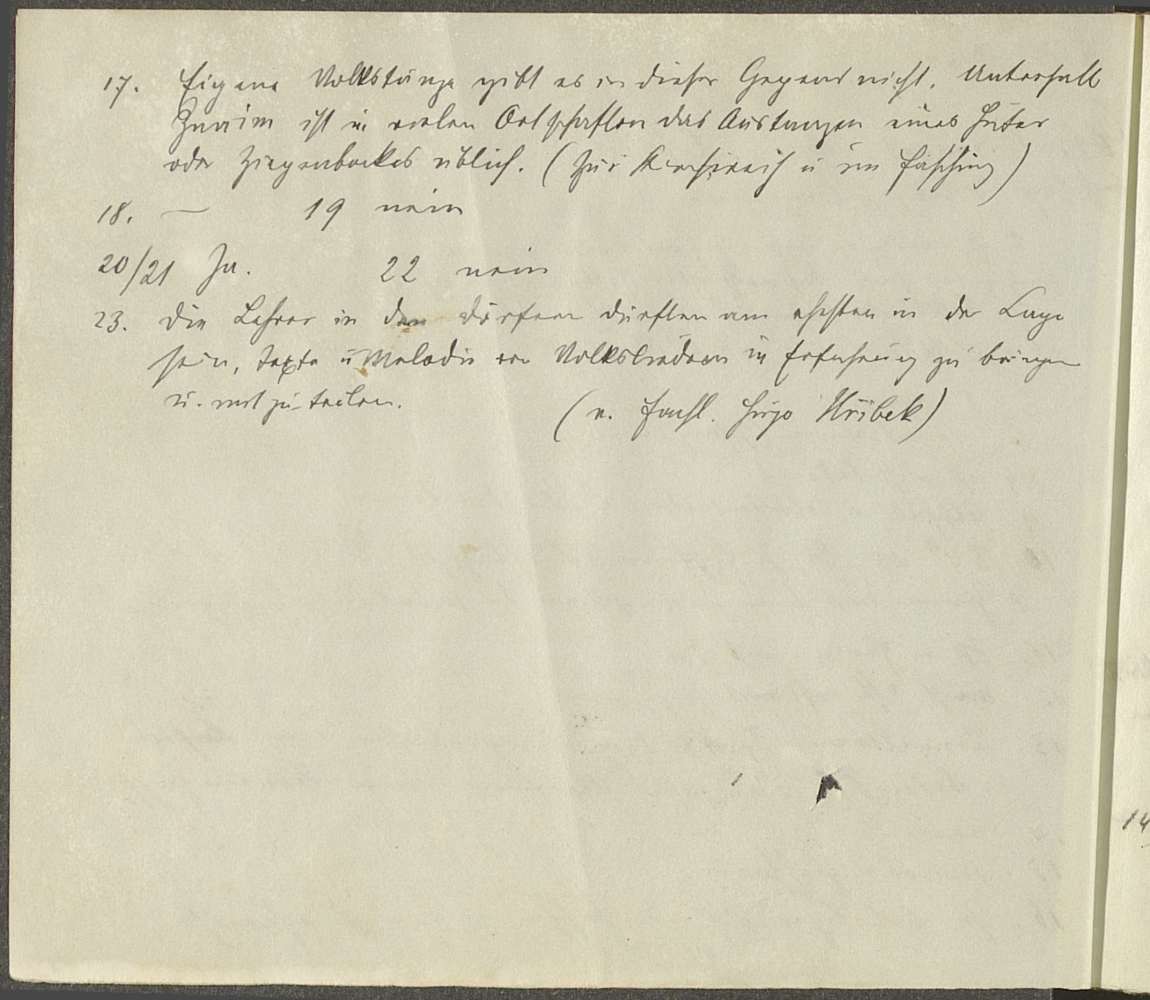 17. Eigene Volkstänze gibt es in dieser Gegend nicht. Unterhalb
Znaim ist in vielen Ortschaften das Austanzen eines Hutes
oder Ziegenbockes üblich. (Zur Kirchweih u im Fasching)
18. — 19 nein
20/21 Ja. 22 nein
23. Die Lehrer in den Dörfern dürften am ehesten in der Lage
sein, Texte u Melodie von Volksliedern in Erfahrung zu bringen
u. mitzuteilen. (v. Fachl. Hugo Hribek)
14